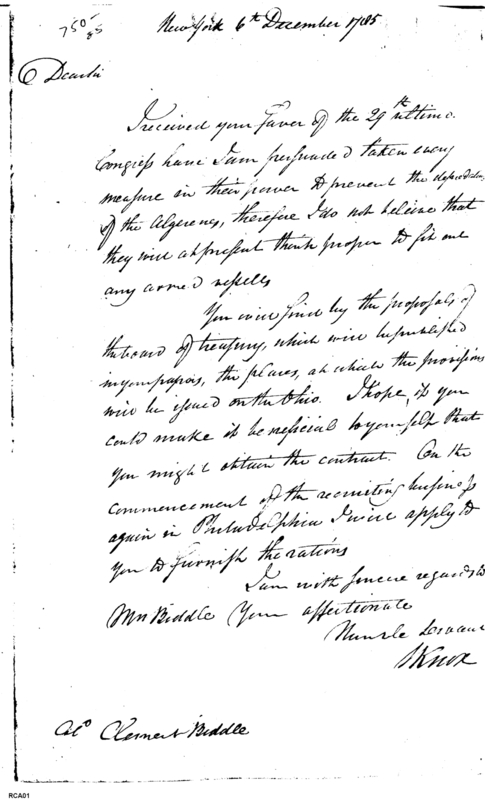 750-
85
New York 6th December 1785
Dear sir
I received your Favor of the 29th ultimo.
Congress have I am persuaded taken every
measure in their power to prevent the depredations
of the Algerenes, therefore I do not believe that
they will at present think proper to fit out
any armed vessells
You will find by the proposals of
the board of treasury, which will be published
in your papers, the places, at which the provisions
will be issued on the Ohio. I hope, if you
could make it beneficial to yourself that
you might obtain the contract. On the
commencement of the recruiting business
again in Philadelphia I will apply to
you to furnish the rations
I am with sincere regards to
Mrs Biddle Your affectionate
Humble Servant
HKnox
Colo Clement Biddle
RCA01